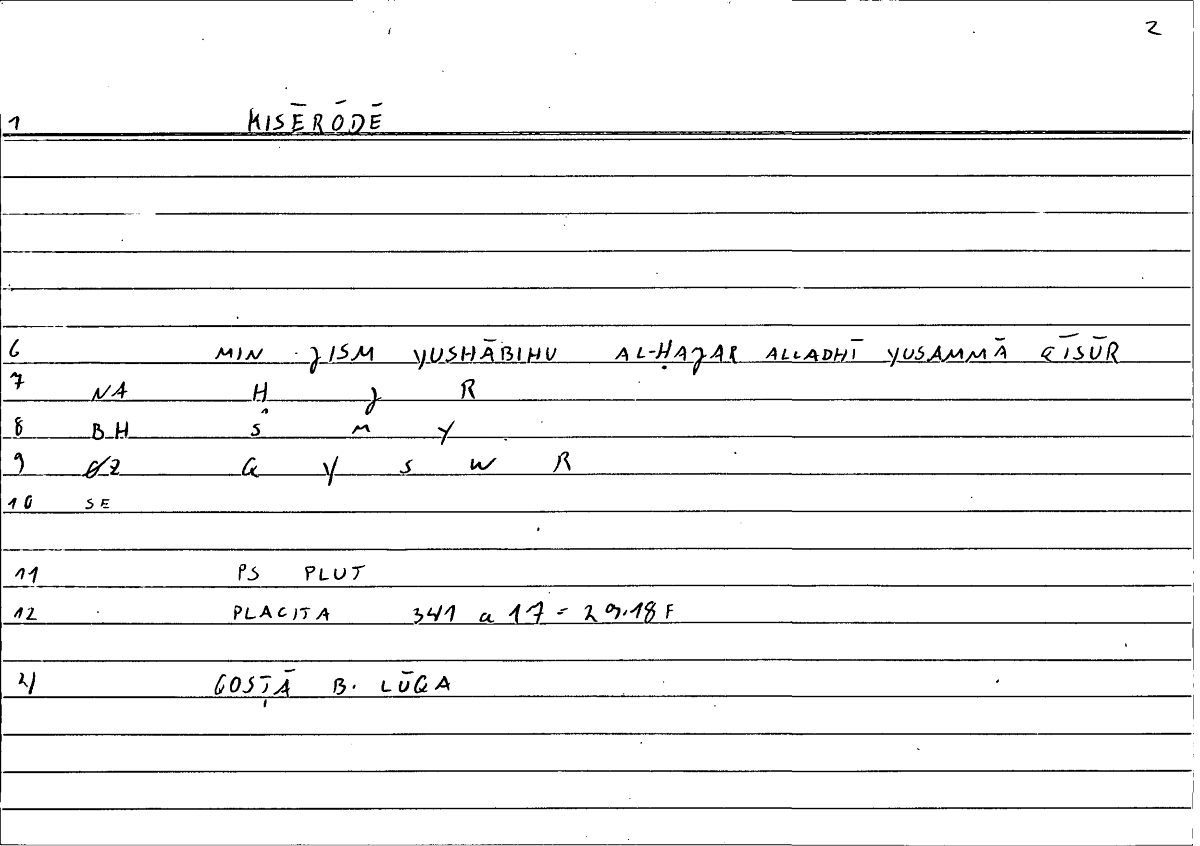 2
1 KISĒRŌDĒ
6 MIN JISM YUSHĀBIHU AL-ḤAJAR ALLADHĪ YUSAMMĀ QĪSŪR
7 NA Ḥ J R
8 BH S M Y
9 OZ Q Y S W R
10 SE
11 PS PLUT
12 PLACITA 341 a 17 = 29.18 F
21 QOSṬĀ B. LŪQA